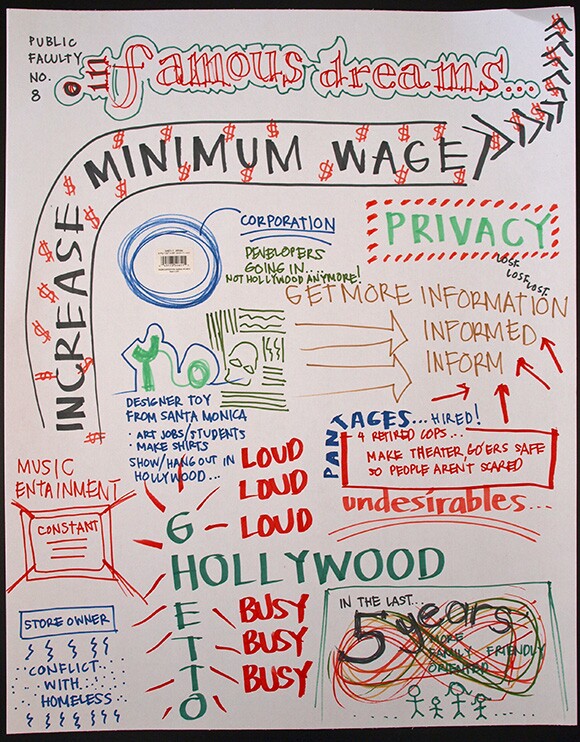 PUBLIC
FACULTY
NO.
8
infamous dreams...
INCREASE MINIMUM WAGE
CORPORATION
DEVELOPERS
GOING IN...
NOT HOLLYWOOD ANYMORE!
PRIVACY
LOSE
LOSE
LOSE
GET MORE INFORMATION
INFORMED
INFORM
YO
DESIGNER TOY
FROM SANTA MONICA
• ART JOBS/STUDENTS
• MAKE SHIRTS
SHOW/HANG OUT IN
HOLLYWOOD...
PANTAGES...HIRED!
4 RETIRED COPS...
MAKE THEATER GO'ERS SAFE
SO PEOPLE AREN'T SCARED
undesirables...
MUSIC
ENTAINMENT
CONSTANT
LOUD
LOUD
LOUD
GHETTO
HOLLYWOOD
BUSY
BUSY
BUSY
STORE OWNER
CONFLICT
WITH
HOMELESS
IN THE LAST..
5 years..
MORE
FAMILY FRIENDLY
ORIENTED